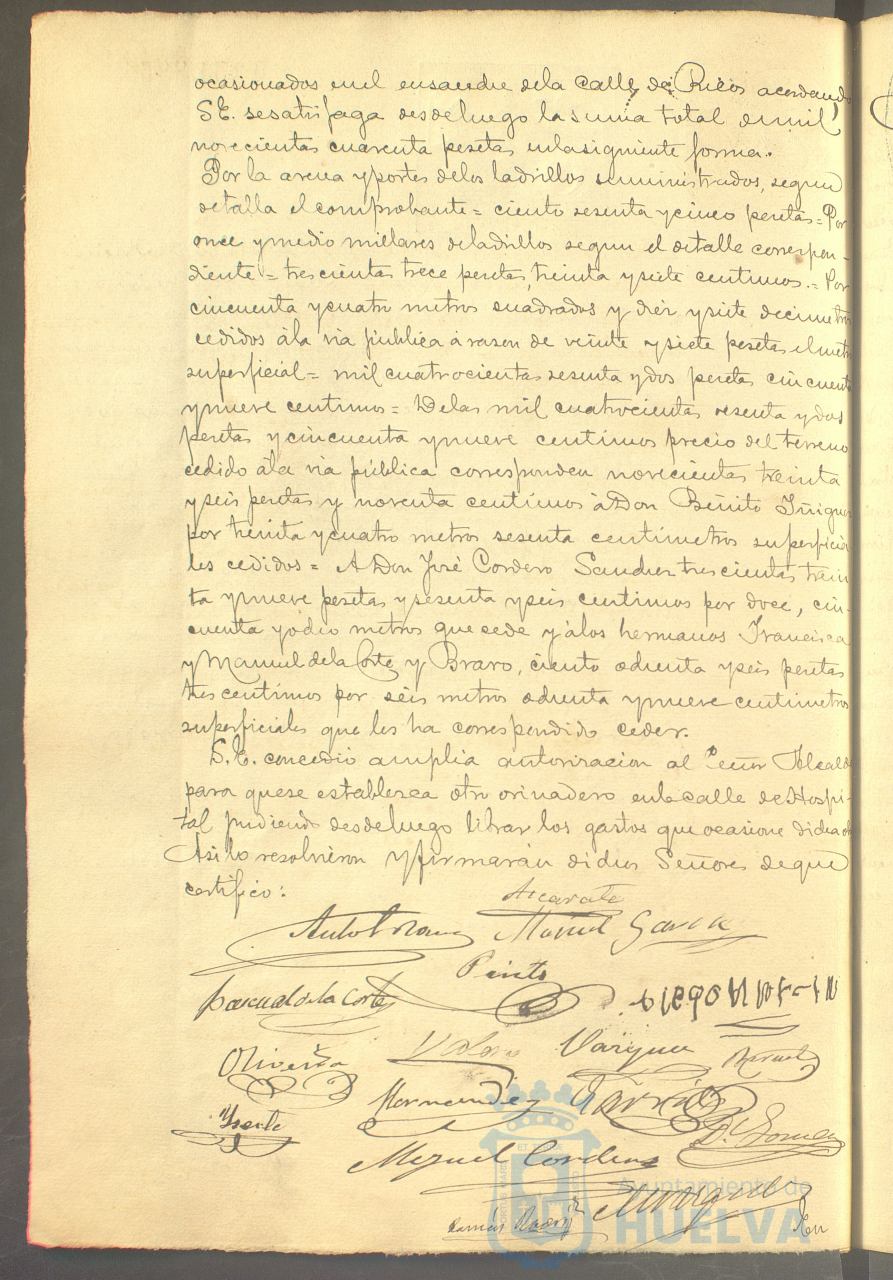 ocasionados en el ensanche dela Calle de Ricos acordando
S.E. se satisfaga desdeluego la suma total de mil
novecientas cuarenta pesetas, enlasiguiente forma.
Por la arena y portes delos ladrillos suministrados, segun
detalla el comprobante = ciento sesenta y cinco pesetas = Por
once y medio millares deladrillos segun el detalle correspon-
diente = trescientas trece pesetas, treinta y siete centimos. = Por
cincuenta y cuatro metros cuadrados y diez y siete decimetros
cedidos ála via pública á razon de veinte y siete pesetas el metro
superficial = mil cuatrocientas sesenta y dos pesetas cincuenta
y nueve centimos = Delas mil cuatrocientas sesenta y dos
pesetas y cincuenta y nueve centimos precio del terreno
cedido ála via pública corresponden novecientas treinta
y seis pesetas y noventa centimos à Don Benito Iñiguez
por treinta y cuatro metros sesenta centimetros superficia
les cedidos = A Don José Cordero Sanchez trescientas trein
ta y nueve pesetas y sesenta y seis centimos por doce, cin-
cuenta y ocho metros que cede y álos hermanos Francisca
y Manuel dela Corte y Bravo, ciento ochenta y seis pesetas
tres centimos por seis metros ochenta y nueve centimetros
superficiales que les ha correspondido ceder.
S.E. concedió amplia autorizacion al Señor Alcalde
para quese establezca otro orinadero enla calle de Hospi-
tal pudiendo desdeluego librar los gastos que ocasione dicha
Asi lo resolvieron y firmarán dichos Señores de que
certifico:
Azcarate
Manuel Garcia
Pinto
Pascual de la Corte
Oliveira Vazquez
Hernandez Garrido
Ysente D. Gomez
Miguel Cordero
Ramón
En
Ayuntamiento de
HUELVA